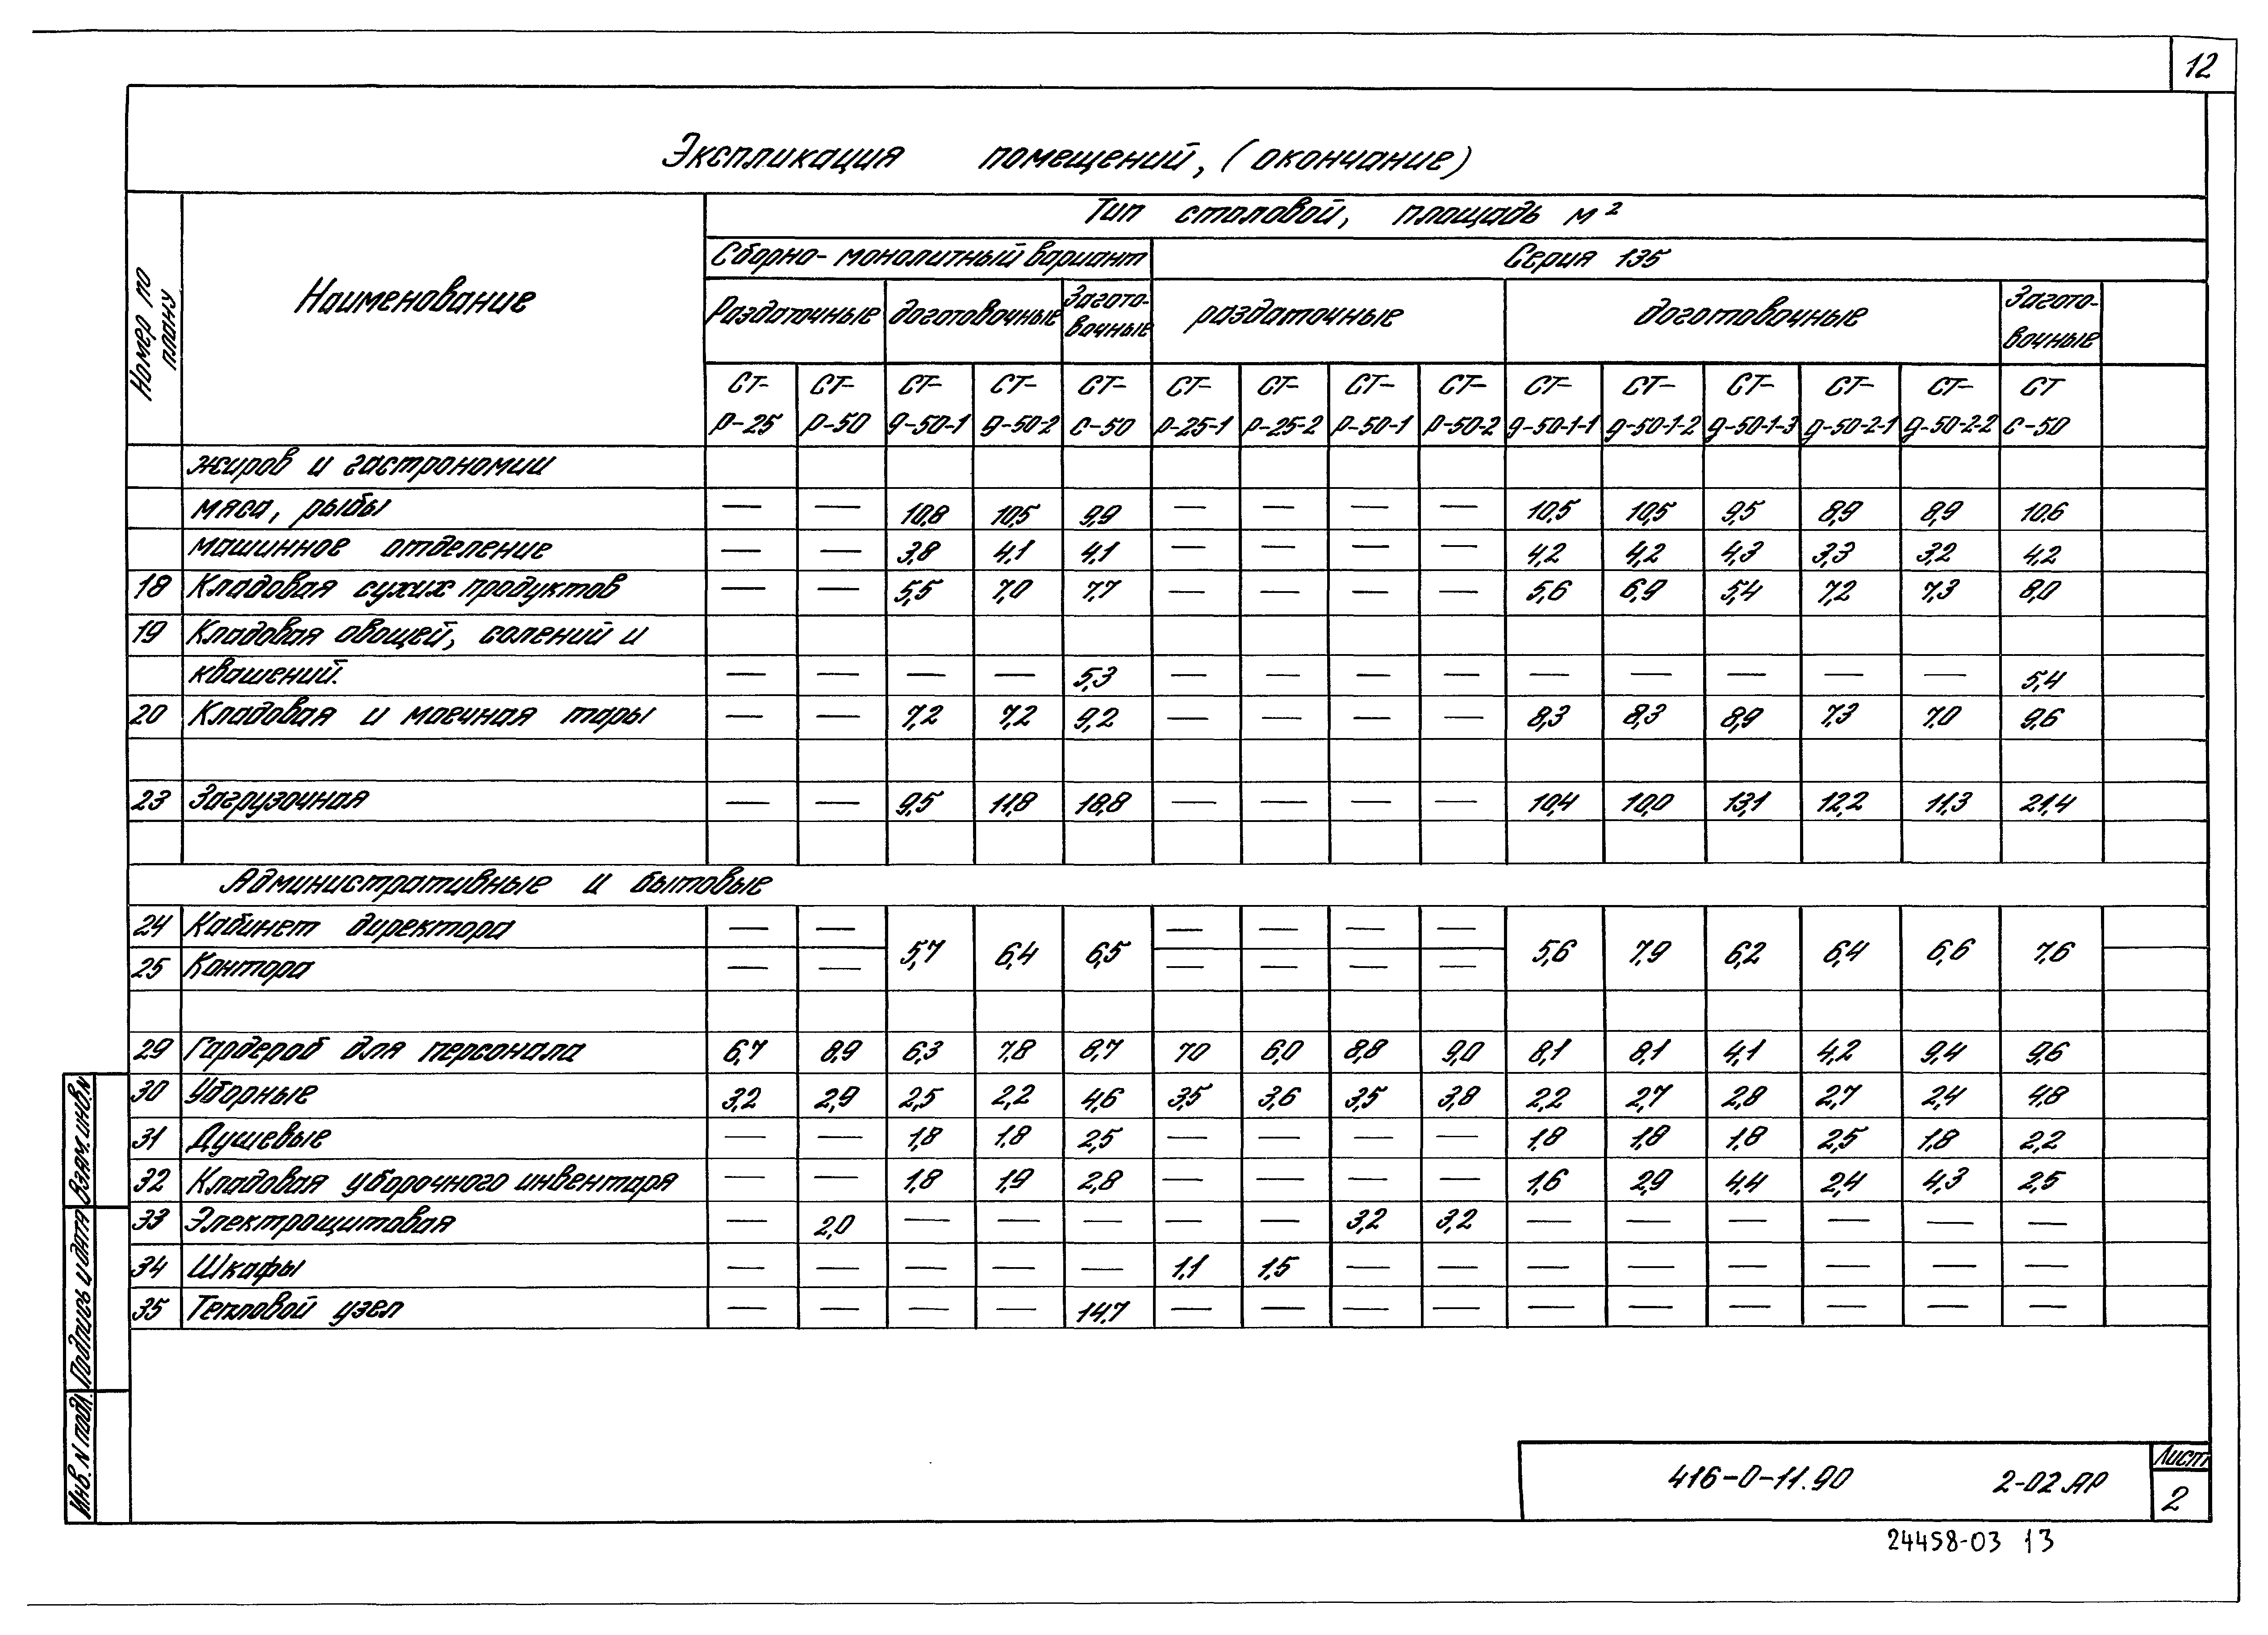 12
Экспликация помещений, (окончание)
Номер по плану
Наименование
Тип столовой, площадь м²
Сборно-монолитный вариант
Серия 135
Раздаточные
доготовочные
Загото-
вочные
раздаточные
доготовочные
Загото-
вочные
СТ- СТ- СТ- СТ- СТ- СТ- СТ- СТ- СТ- СТ- СТ- СТ- СТ- СТ- СТ
Р-25 Р-50 д-50-1 д-50-2 С-50 Р-25-1 Р-25-2 Р-50-1 Р-50-2 д-50-1-1 д-50-1-2 д-50-1-3 д-50-2-1 д-50-2-2 С-50
жиров и гастрономии
мяса, рыбы — — 10,8 10,5 9,9 — — — — 10,5 10,5 9,5 8,9 8,9 10,6
машинное отделение — — 3,8 4,1 4,1 — — — — 4,2 4,2 4,3 3,3 3,2 4,2
18 Кладовая сухих продуктов — — 5,5 7,0 7,7 — — — — 5,6 6,9 5,4 7,2 7,3 8,0
19 Кладовая овощей, солений и
квашений. — — — — 5,3 — — — — — — — — — 5,4
20 Кладовая и моечная тары — — 7,2 7,2 9,2 — — — — 8,3 8,3 8,9 7,3 7,0 9,6
23 Загрузочная — — 9,5 11,8 18,8 — — — — 10,4 10,0 13,1 12,2 11,3 21,4
Административные и бытовые
24 Кабинет директора — — 5,7 6,4 6,5 — — — — 5,6 7,9 6,2 6,4 6,6 7,6
25 Контора — — — — — —
29 Гардероб для персонала 6,7 8,9 6,3 7,8 8,7 70 6,0 8,8 9,0 8,1 8,1 4,1 4,2 9,4 9,6
30 Уборные 3,2 2,9 2,5 2,2 4,6 3,5 3,6 3,5 3,8 2,2 2,7 2,8 2,7 2,4 4,8
31 Душевые — — 1,8 1,8 2,5 — — — — 1,8 1,8 1,8 2,5 1,8 2,2
32 Кладовая уборочного инвентаря — — 1,8 1,9 2,8 — — — — 1,6 2,9 4,4 2,4 4,3 2,5
33 Электрощитовая — 2,0 — — — — — 3,2 3,2 — — — — — —
34 Шкафы — — — — — 1,1 1,5 — — — — — — — —
35 Тепловой узел — — — — 14,7 — — — — — — — — — —
Взам. инв. N
Подпись и дата
Инв. N подл.
416-0-11.90 2-02.АР
Лист
2
24458-03 13